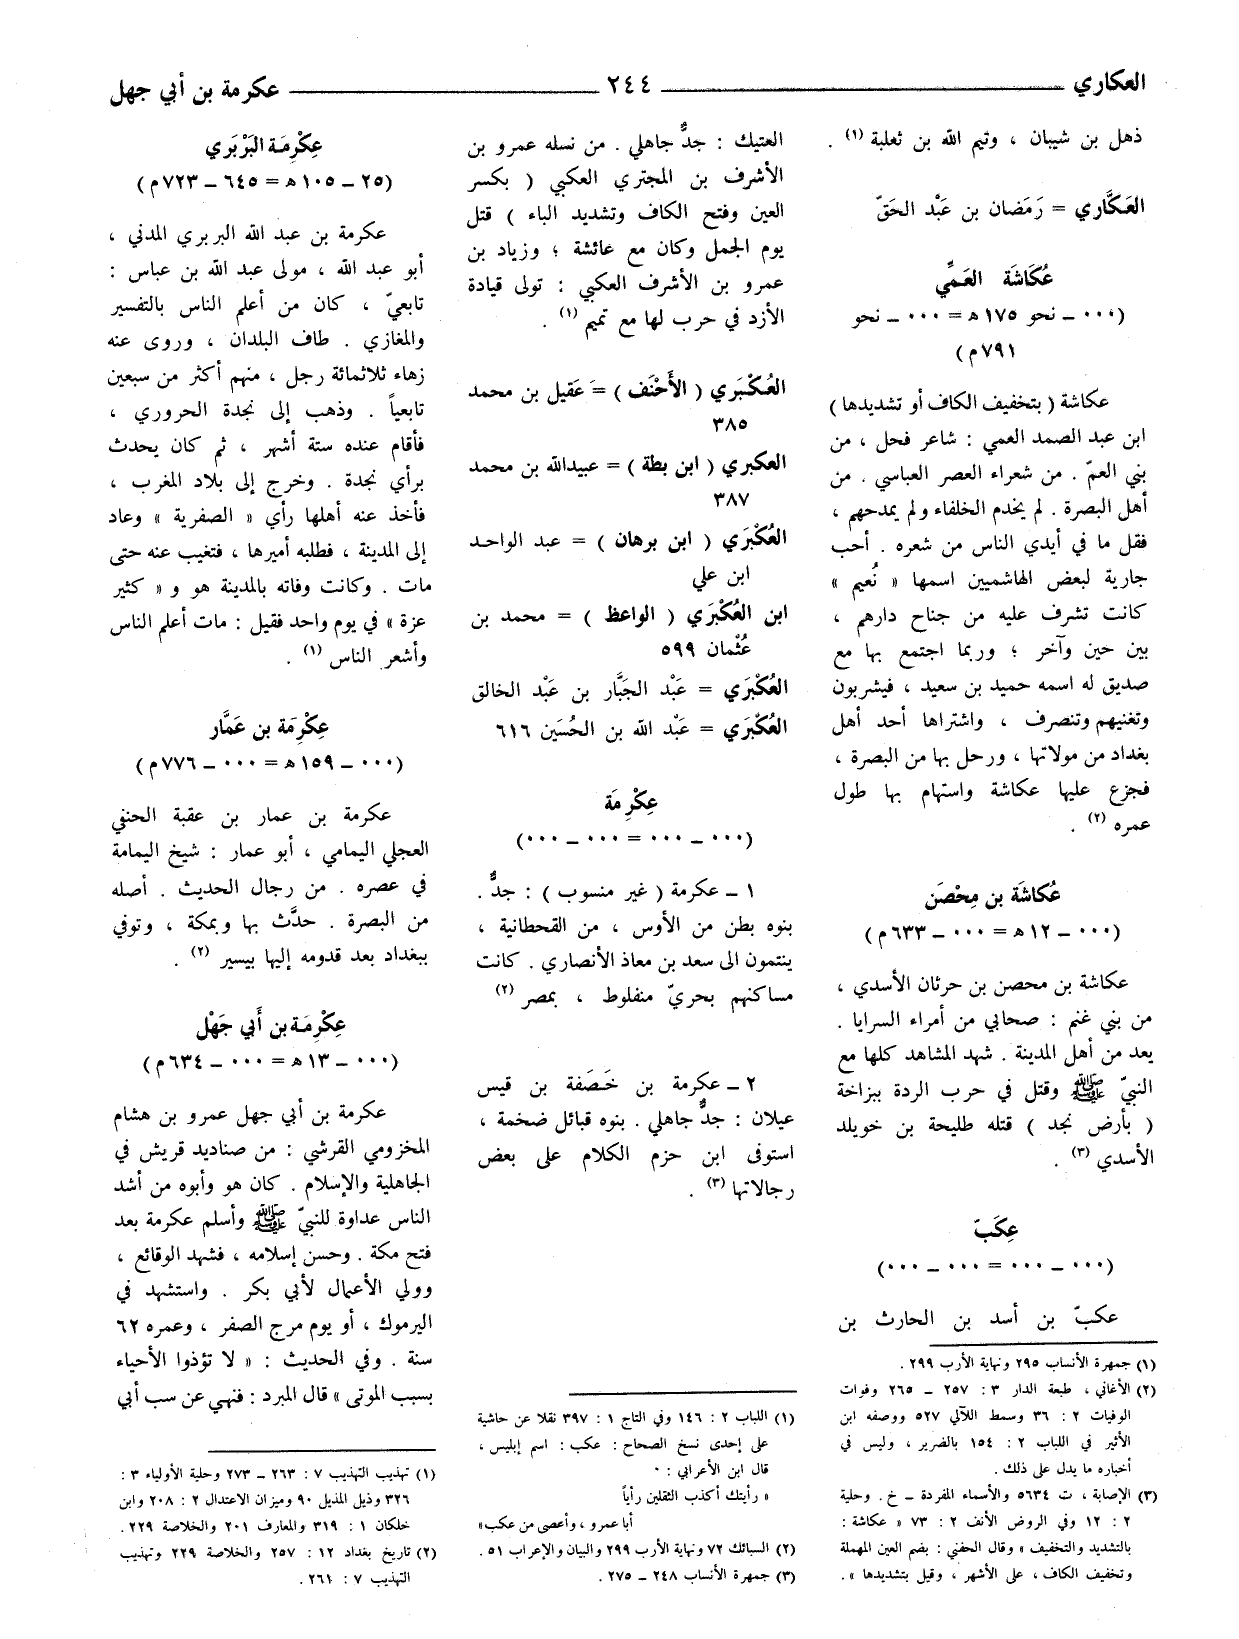 العكاري ـــ ٢٤٤ ـــ عكرمة بن أبي جهل
ذهل بن شيبان ، وتيم الله بن ثعلبة (١) .
العَكَّاري = رَمَضان بن عَبْد الحَقّ
عُكَاشَة العَمِّي
(٠٠٠ ـ نحو ١٧٥ ه = ٠٠٠ ـ نحو
٧٩١ م)
عكاشة ( بتخفيف الكاف أو تشديدها )
ابن عبد الصمد العمي : شاعر فحل ، من
بني العمّ . من شعراء العصر العباسي . من
أهل البصرة . لم يخدم الخلفاء ولم يمدحهم ،
فقل ما في أيدي الناس من شعره . أحب
جارية لبعض الهاشميين اسمها « نُعيم »
كانت تشرف عليه من جناح دارهم ،
بين حين وآخر ؛ وربما اجتمع بها مع
صديق له اسمه حميد بن سعيد ، فيشربون
وتغنيهم وتنصرف ، واشتراها أحد أهل
بغداد من مولاتها ، ورحل بها من البصرة ،
فجزع عليها عكاشة واستهام بها طول
عمره (٢) .
عُكاشَة بن مِحْصَن
(٠٠٠ ـ ١٢ ه = ٠٠٠ ـ ٦٣٣ م)
عكاشة بن محصن بن حرثان الأسدي ،
من بني غنم : صحابي من أمراء السرايا .
يعد من أهل المدينة . شهد المشاهد كلها مع
النبيّ ﷺ وقتل في حرب الردة ببزاخة
( بأرض نجد ) قتله طليحة بن خويلد
الأسدي (٣) .
عِكَبّ
(٠٠٠ ـ ٠٠٠ = ٠٠٠ ـ ٠٠٠)
عكبّ بن أسد بن الحارث بن
(١) جمهرة الأنساب ٢٩٥ ونهاية الأرب ٢٩٩ .
(٢) الأغاني ، طبعة الدار ٣ : ٢٥٧ ـ ٢٦٥ وفوات
الوفيات ٢ : ٣٦ وسمط اللآلي ٥٢٧ ووصفه ابن
الأثير في اللباب ٢ : ١٥٤ بالضرير ، وليس في
أخباره ما يدل على ذلك .
(٣) الإصابة ، ت ٥٦٣٤ والأسماء المفردة ـ خ . وحلية
٢ : ١٢ وفي الروض الأنف ٢ : ٧٣ « عكاشة :
بالتشديد والتخفيف » وقال الحفني : بضم العين المهملة
وتخفيف الكاف ، على الأشهر ، وقيل بتشديدها » .
العتيك : جدٌّ جاهلي . من نسله عمرو بن
الأشرف بن المجتري العكبي ( بكسر
العين وفتح الكاف وتشديد الباء ) قتل
يوم الجمل وكان مع عائشة ؛ وزياد بن
عمرو بن الأشرف العكبي : تولى قيادة
الأزد في حرب لها مع تميم (١) .
العُكْبَري ( الأَحْنَف ) = عَقيل بن محمد
٣٨٥
العكبري ( ابن بطة ) = عبيدالله بن محمد
٣٨٧
العُكْبَري ( ابن برهان ) = عبد الواحد
ابن علي
ابن العُكْبَري ( الواعظ ) = محمد بن
عُثْمان ٥٩٩
العُكْبَري = عَبْد الجَبَّار بن عَبْد الخالق
العُكْبَري = عَبْد الله بن الحُسَين ٦١٦
عِكْرِمَة
(٠٠٠ ـ ٠٠٠ = ٠٠٠ ـ ٠٠٠)
١ ـ عكرمة ( غير منسوب ) : جدٌّ .
بنوه بطن من الأوس ، من القحطانية ،
ينتمون الى سعد بن معاذ الأنصاري . كانت
مساكنهم بحريّ منفلوط ، بمصر (٢)
٢ ـ عكرمة بن خَصَفة بن قيس
عيلان : جدٌّ جاهلي . بنوه قبائل ضخمة ،
استوفى ابن حزم الكلام على بعض
رجالاتها (٣) .
(١) اللباب ٢ : ١٤٦ وفي التاج ١ : ٣٩٧ نقلا عن حاشية
على إحدى نسخ الصحاح : عكب : اسم إبليس ،
قال ابن الأعرابي :
« رأيتك أكذب الثقلين رأياً
أبا عمرو ، وأعصى من عكب»
(٢) السبائك ٧٢ ونهاية الأرب ٢٩٩ والبيان والإعراب ٥١ .
(٣) جمهرة الأنساب ٢٤٨ ـ ٢٧٥ .
عِكْرِمَة البَرْبَري
(٢٥ ـ ١٠٥ ه = ٦٤٥ ـ ٧٢٣ م)
عكرمة بن عبد الله البربري المدني ،
أبو عبد الله ، مولى عبد الله بن عباس :
تابعيّ ، كان من أعلم الناس بالتفسير
والمغازي . طاف البلدان ، وروى عنه
زهاء ثلاثمائة رجل ، منهم أكثر من سبعين
تابعياً . وذهب إلى نجدة الحروري ،
فأقام عنده ستة أشهر ، ثم كان يحدث
برأي نجدة . وخرج إلى بلاد المغرب ،
فأخذ عنه أهلها رأي « الصفرية » وعاد
إلى المدينة ، فطلبه أميرها ، فتغيب عنه حتى
مات . وكانت وفاته بالمدينة هو و « كثير
عزة » في يوم واحد فقيل : مات أعلم الناس
وأشعر الناس (١) .
عِكْرِمَة بن عَمَّار
(٠٠٠ ـ ١٥٩ ه = ٠٠٠ ـ ٧٧٦ م)
عكرمة بن عمار بن عقبة الحنفي
العجلي اليمامي ، أبو عمار : شيخ اليمامة
في عصره . من رجال الحديث . أصله
من البصرة . حدَّث بها وبمكة ، وتوفي
ببغداد بعد قدومه إليها بيسير (٢) .
عِكْرِمَة بن أَبي جَهْل
(٠٠٠ ـ ١٣ ه = ٠٠٠ ـ ٦٣٤ م)
عكرمة بن أبي جهل عمرو بن هشام
المخزومي القرشي : من صناديد قريش في
الجاهلية والإسلام . كان هو وأبوه من أشد
الناس عداوة للنبيّ ﷺ وأسلم عكرمة بعد
فتح مكة . وحسن إسلامه ، فشهد الوقائع ،
وولي الأعمال لأبي بكر . واستشهد في
اليرموك ، أو يوم مرج الصفر ، وعمره ٦٢
سنة . وفي الحديث : « لا تؤذوا الأحياء
بسبب الموتى » قال المبرد : فنهي عن سب أبي
(١) تهذيب التهذيب ٧ : ٢٦٣ ـ ٢٧٣ وحلية الأولياء ٣ :
٣٢٦ وذيل المذيل ٩٠ وميزان الاعتدال ٢ : ٢٠٨ وابن
خلكان ١ : ٣١٩ والمعارف ٢٠١ والخلاصة ٢٢٩ .
(٢) تاريخ بغداد ١٢ : ٢٥٧ والخلاصة ٢٢٩ وتهذيب
التهذيب ٧ : ٢٦١ .